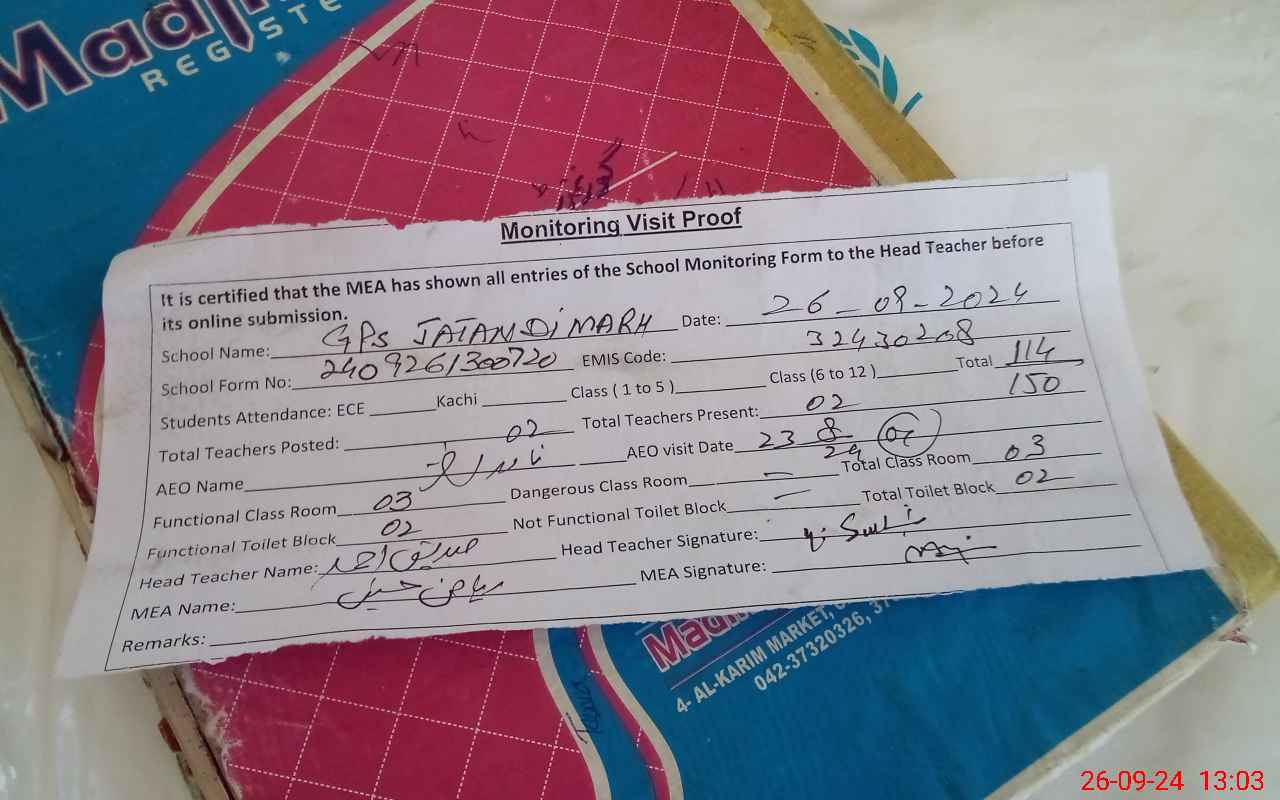 REGISTE
Monitoring Visit Proof
It is certified that the MEA has shown all entries of the School Monitoring Form to the Head Teacher before
its online submission.
School Name: GPS JATAN DI MARH Date: 26-09-2024
School Form No: 2409261300720 EMIS Code: 32430208
Students Attendance: ECE Kachi Class ( 1 to 5 ) Class (6 to 12 ) Total 114
150
Total Teachers Posted: 02 Total Teachers Present: 02
AEO Name AEO visit Date 23 8 24
Functional Class Room 03 Dangerous Class Room — Total Class Room 03
Functional Toilet Block 02 Not Functional Toilet Block — Total Toilet Block 02
Head Teacher Name: صدیق احمد Head Teacher Signature:
MEA Name: ریاض حسین MEA Signature:
Remarks:
4- AL-KARIM MARKET,
042-37320326, 37
26-09-24 13:03